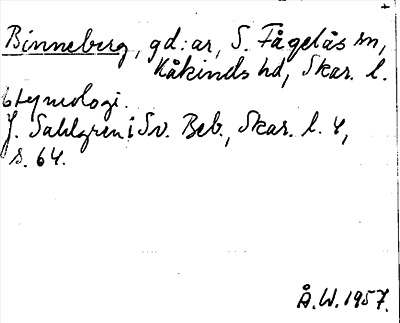 Binneberg, gd:ar, S. Fågelås sn,
Kåkinds hd, Skar. l.
Etymologi.
J. Sahlgren i Sv. Beb., Skar. l. 4,
s. 64.
Å.W. 1957.